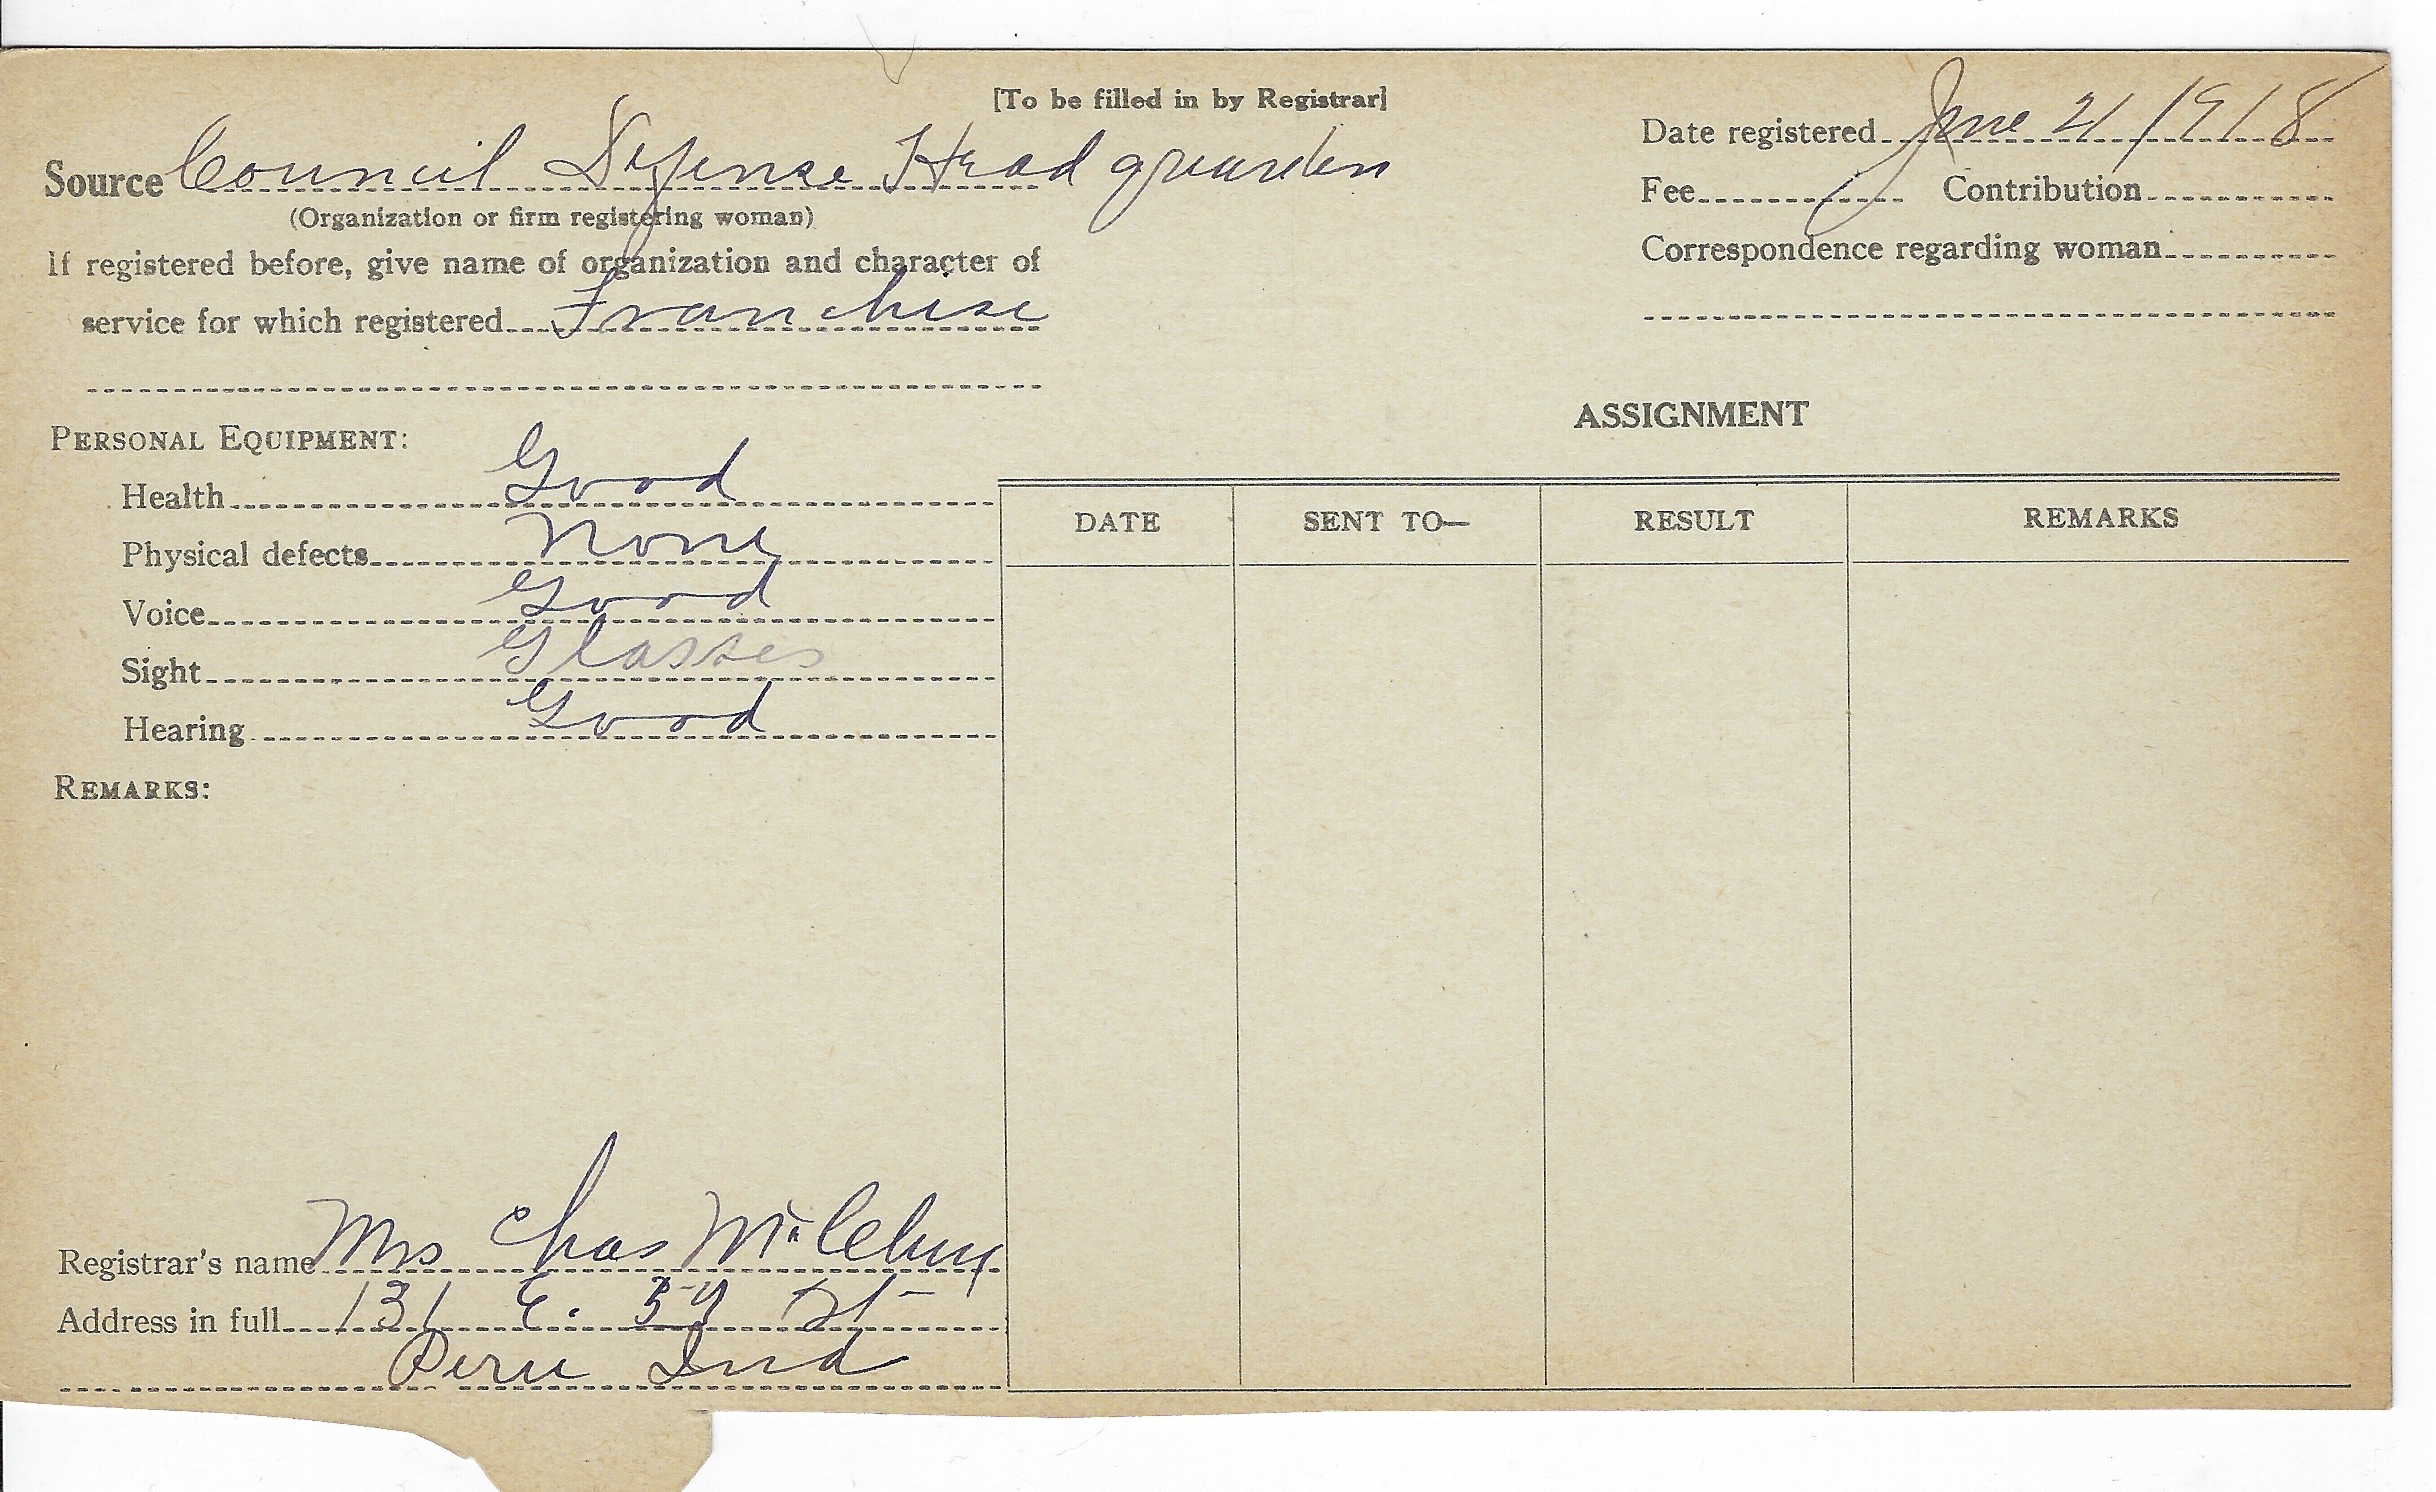 [To be filled in by Registrar]
Source Council Defense Head quarters
(Organization or firm registering woman)
If registered before, give name of organization and character of
service for which registered Franchise
Date registered June 21 1918
Fee Contribution
Correspondence regarding woman
PERSONAL EQUIPMENT:
Health Good
Physical defects None
Voice Good
Sight Glasses
Hearing Good
REMARKS:
ASSIGNMENT
DATE SENT TO— RESULT REMARKS
Registrar's name Mrs Chas
Address in full 131 E. St
Peru Ind